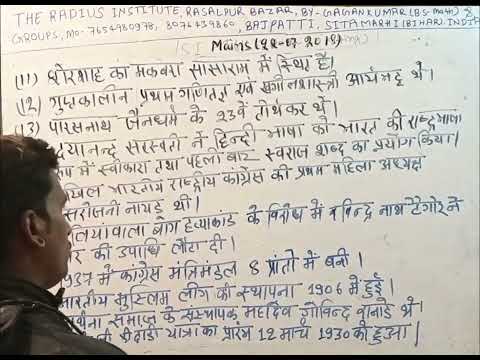 THE RADIUS INSTITUTE, RASALPUR BAZAR, BY-GAGANKUMAR (BS-Math) &
GROUPS, MO- 7654980978, 8076439860, BAJPATTI, SITAMARHI (BIHAR). INDIA
Mains (22-07-2018)
(11) शेरशाह का मकबरा सासाराम में स्थित है।
(12) गुप्तकालीन प्रथम गणितज्ञ एवं खगोलशास्त्री आर्यभट्ट थे।
(13) पारसनाथ जैनधर्म के 23वें तीर्थंकर थे।
दयानन्द सरस्वती ने हिन्दी भाषा को भारत की राष्ट्रभाषा
में स्वीकारा तथा पहली बार स्वराज शब्द का प्रयोग किया।
भारतीय राष्ट्रीय कांग्रेस की प्रथम महिला अध्यक्ष
सरोजनी नायडू थीं।
बाग हत्याकांड के विरोध में रविन्द्र नाथ टैगोर ने
की उपाधि लौटा दी।
1937 में कांग्रेस मंत्रिमंडल 8 प्रांतों में बनी।
भारतीय मुस्लिम लीग की स्थापना 1906 में हुई।
समाज के संस्थापक महादेव गोविन्द रानाडे थे।
यात्रा का प्रारंभ 12 मार्च 1930 को हुआ।